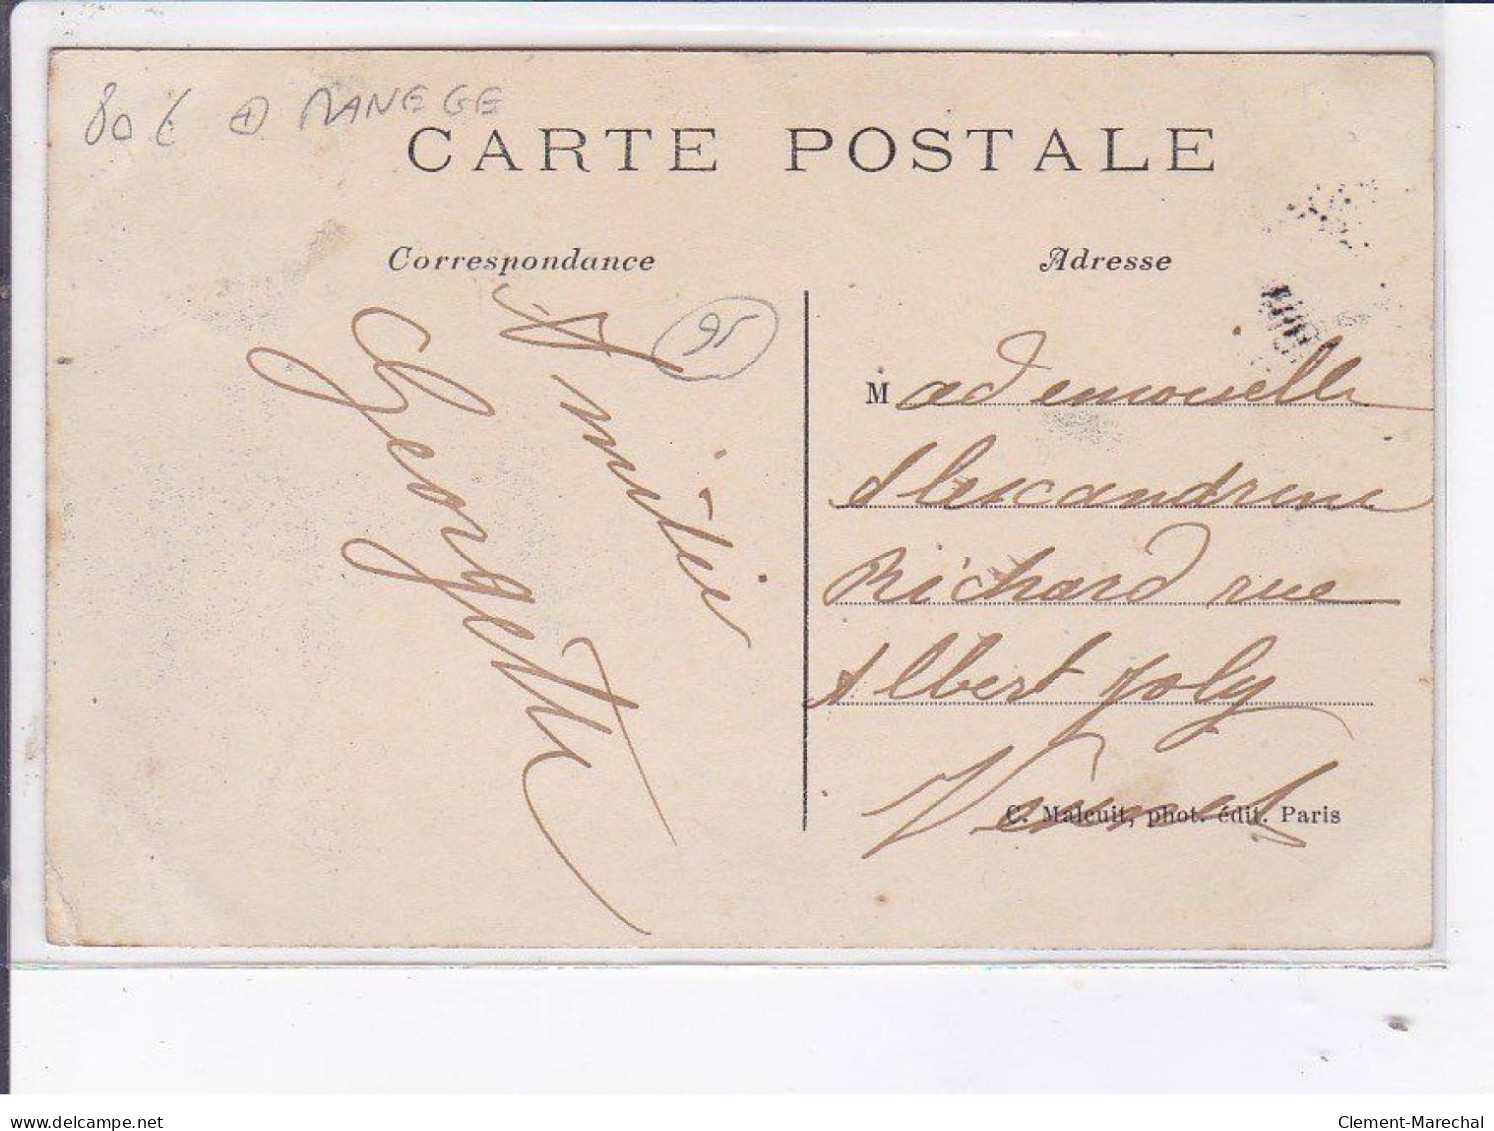 80 € MANEGE
CARTE POSTALE
Correspondance
Adresse
95
Amitiés
Georgette
Mademoiselle
Alexandrine
Richard rue
Albert Joly
C. Malcuit, phot. édit. Paris
delcampe.net
Clement-Marechal